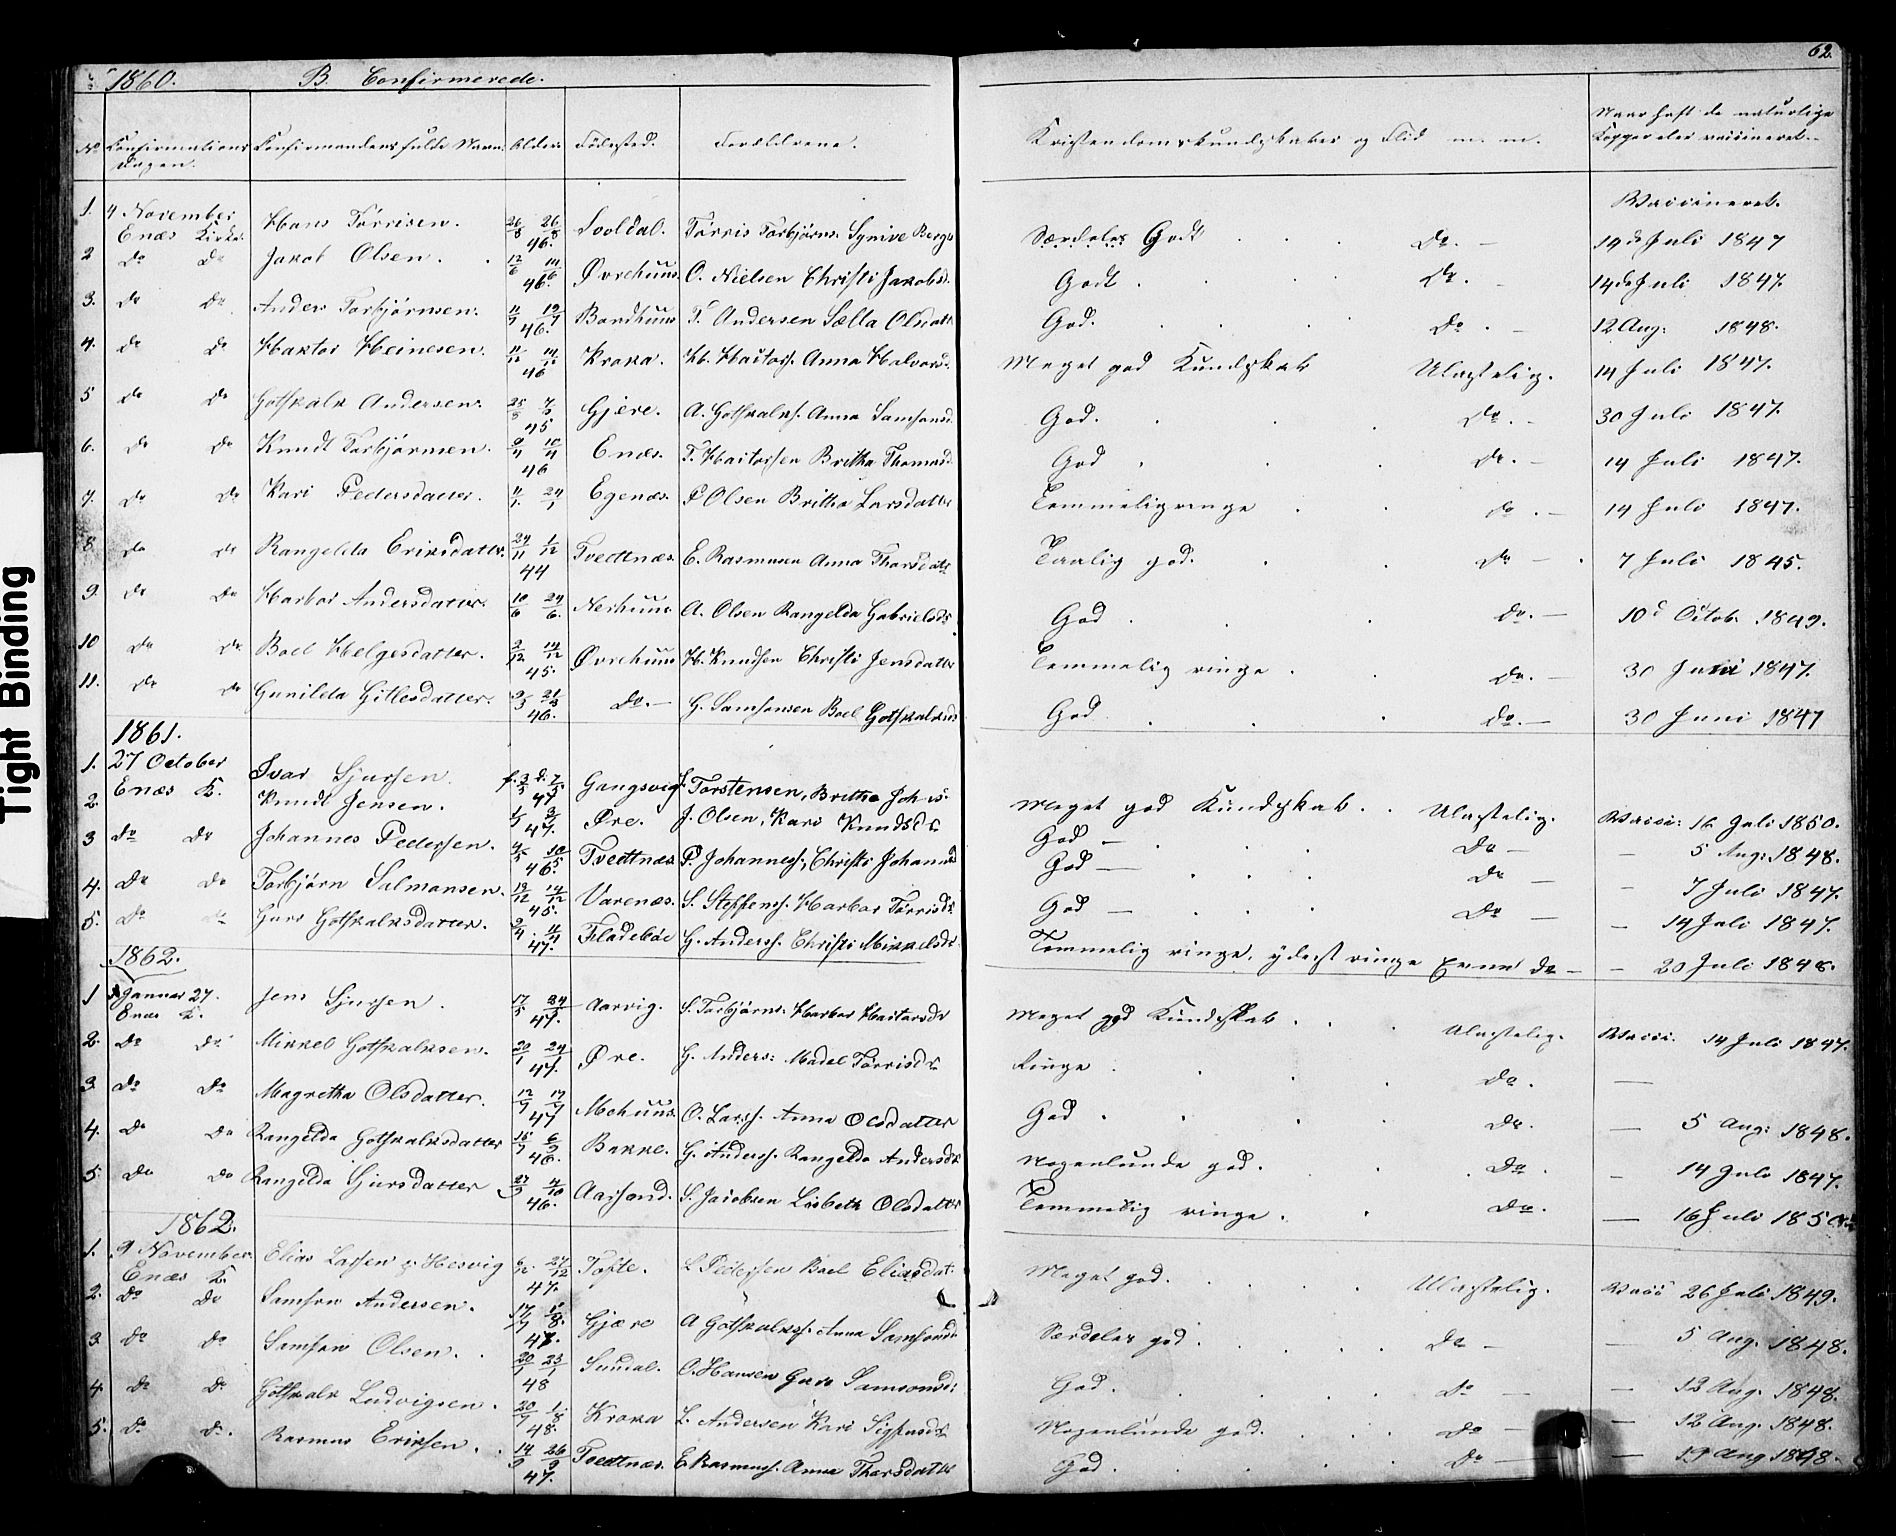 62.
1860. B. Confirmerede.
No Confirmations dagen. Confirmandens fulde Navn. Alder. Fødested. Forældrene. Kristendomskundskaber og Flid m. m. Naar haft de naturlige Kopper eler vaccineret.
1. 4 November Enæs Kirke. Hans Tørrisen. 26/8 26/8 46. Sooldal. Tørris Torbjørns. Synive Bergs Særdeles Godt do. Vaccineret. 14d Juli 1847
2 do do Jakob Olsen. 12/6 14/6 46. Øvrehuus. O. Nielsen Christi Jakobsd. Godt. do. 14de Juli 1847.
3. do do Anders Torbjørnsen. 11/7 19/7 46. Bondhuus T. Andersen Sælla Olsdatt God. do. 12 Aug: 1848.
4. do do Haktor Heinesen. 46 Kroka. H. Hactors. Anna Halvorsd. Meget god Kundskab Ulastelig. 14 Juli 1847.
5 do do Gotskalk Andersen. 45 Gjere. A. Gotskalks. Anna Samsonsd God. do. 30 Juli 1847.
6. do do Knudt Torbjørnsen. 9/4 10/4 46 Enæs. T. Hactorsen Britha Thomasd God do. 14 Juli 1847.
7. do do Kari Pedersdatter. 11/1. 24/1 Egenæs. P Olsen Britha Larsdatter Temmeligringe do. 14 Juli 1847.
8. do do Rangelda Eriksdatter 24/11 1/12 44 Tvedtnæs. E. Rasmusen Anna Thorsdatt Taalig god. do 7 Juli 1845.
9. do do Harbor Andersdatter. 10/6 24/6. Nerhuus A. Olsen Rangelda Gabrielsdr. God do. 10d Octob. 1849.
10 do do Boel Helgesdatter. 2/12 14/12 45. Øvrehuus H. Knudsen Christi Jensdatter Temmelig ringe. do. 30 Juni 1847.
11. do do Gunilda Gitlesdatter. 46. do. G. Samsonsen Boel Gotskalksd God do. 30 Juni 1847
1861.
1. 27 October Enæs K. Ivar Sjursen. f. 3/5 d. 7/5. 47 Gangsvig S. Torstensen, Britha Johs. Meget god Kundskab. Ulastelig. Vacci: 16 Juli 1850.
2. Knudt Jensen. 47. Øre. J. Olsen, Kari Knudsdr God do 5 Aug: 1848.
3 do do Johannes Pedersen. 4/5 10/5 46. Tvedtnæs P. Johanness, Christi Johansd God do 7 Juli 1847.
4. do do Torbjørn Salmonsen. 19/12 14/12 45. Varenæs. S. Steffens. Harbor Tørrisdr. God do 14 Juli 1847.
5. do do Guro Gotskalksdatter. 2/4. 11/4 47. Fladebøe G. Anders. Christi Mikkelsdr. Temmelig ringe, yderst ringe Evne do 20 Juli 1848.
1862.
1 Januar 27. Enæs K. Jens Sjursen. 17/5 24/5 47. Aarvig. S. Torbjørns. Harbor Hactorsdr Meget god Kundskab. Ulastelig. Vacci. 14 Juli 1847.
2. do do Mikkel Gotskalksen. 20/1 24/1 47. Øre. G. Anders: Madel Tørrisdr. Ringe do.
3. do do Magretha Olsdatter. 12/7 17/7 47 Mehuus. O. Lars. Anna Olsdatter God. do. 5 Aug: 1848.
4. do do Rangelda Gotskalksdatter 46. Bakke. G. Anders. Rangelda Andersdr Nogenlunde god. do. 14 Juli 1847.
5. do do Rangelda Sjursdatter 27/9 4/10 46. Aarsand. S. Jacobsen Lisbeth Olsdatter Temmelig ringe. do. 16 Juli
1862.
1. 9 November Enæs K. Elias Larsen Hesvig 6/12. 27/12 47. Tofte. L Pedersen Boel Eliasdat: Meget god. Ulastelig. Vacci 26 Juli 1849.
2. do do Samson Andersen. 47. Gjære A Gotskalks. Anna Samsonsdr Særdeles god. do 5 Aug. 1848.
3. do do Samson Olsen. 20/1 23/1 48 Sundal. O. Hansen Guro Samsonsd: God. do 12 Aug. 1848.
4. do do Gotskalk Ludvigsen. 20/7 1/8 48. Kroka L. Andersen Kari Sigfusdr Nogenlunde god. do 12 Aug. 1848.
5. do do. Rasmus Eriksen. 14/9 26/9 47. Tvedtnæs. E Rasmuss. Anna Thorsdatter God. do 19 Aug 1848.
Tight Binding